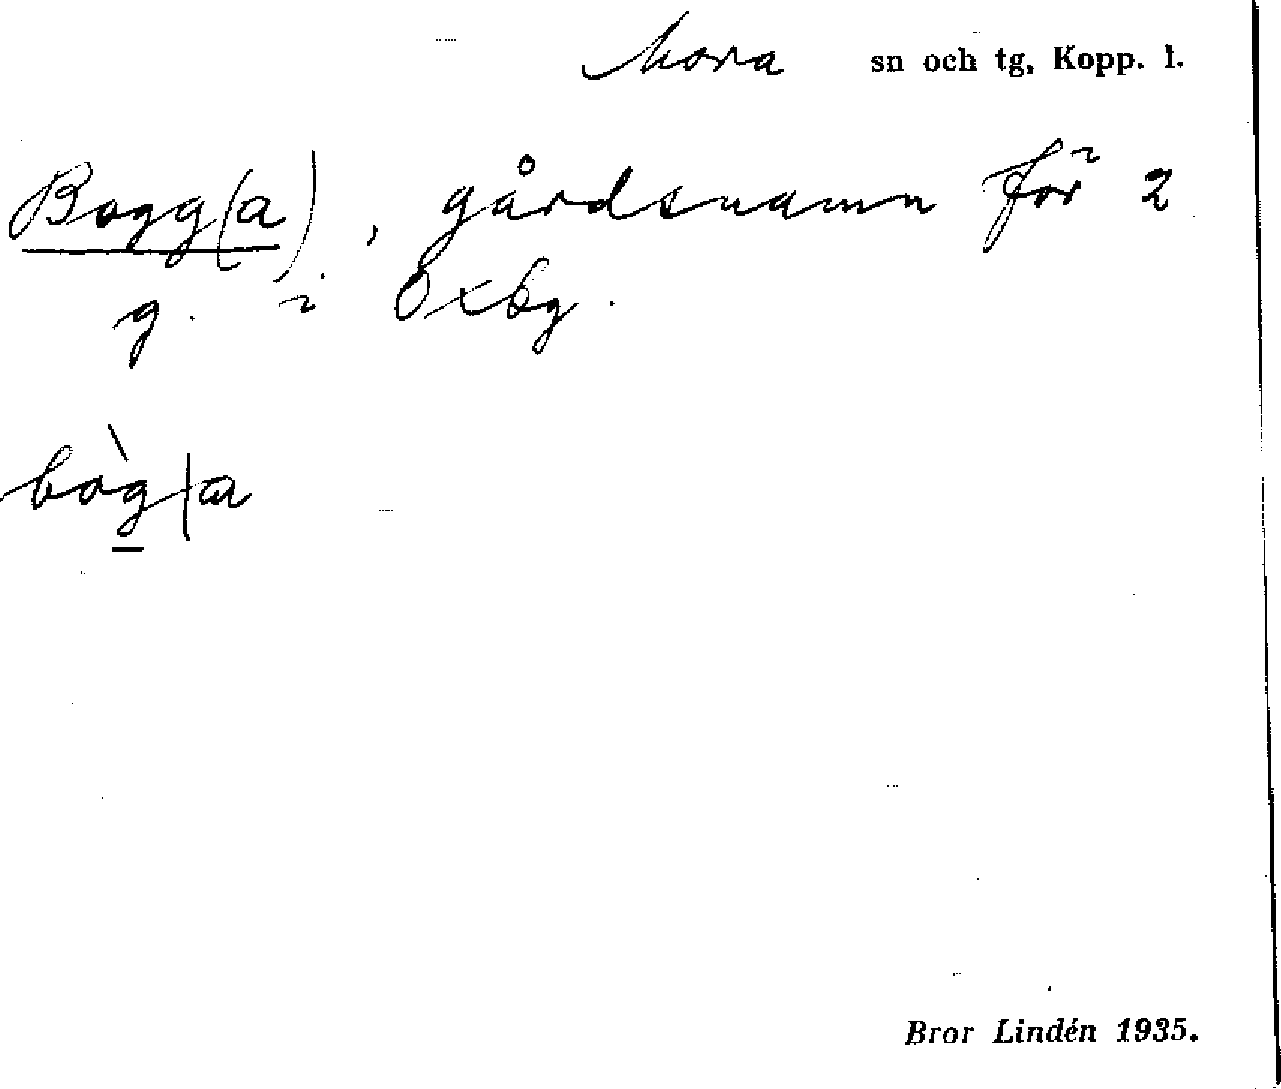 Mora sn och tg, Kopp. l.
Bogg(a), gårdsnamn för 2
g. i Oxbg.
bòg|a
Bror Lindén 1935.